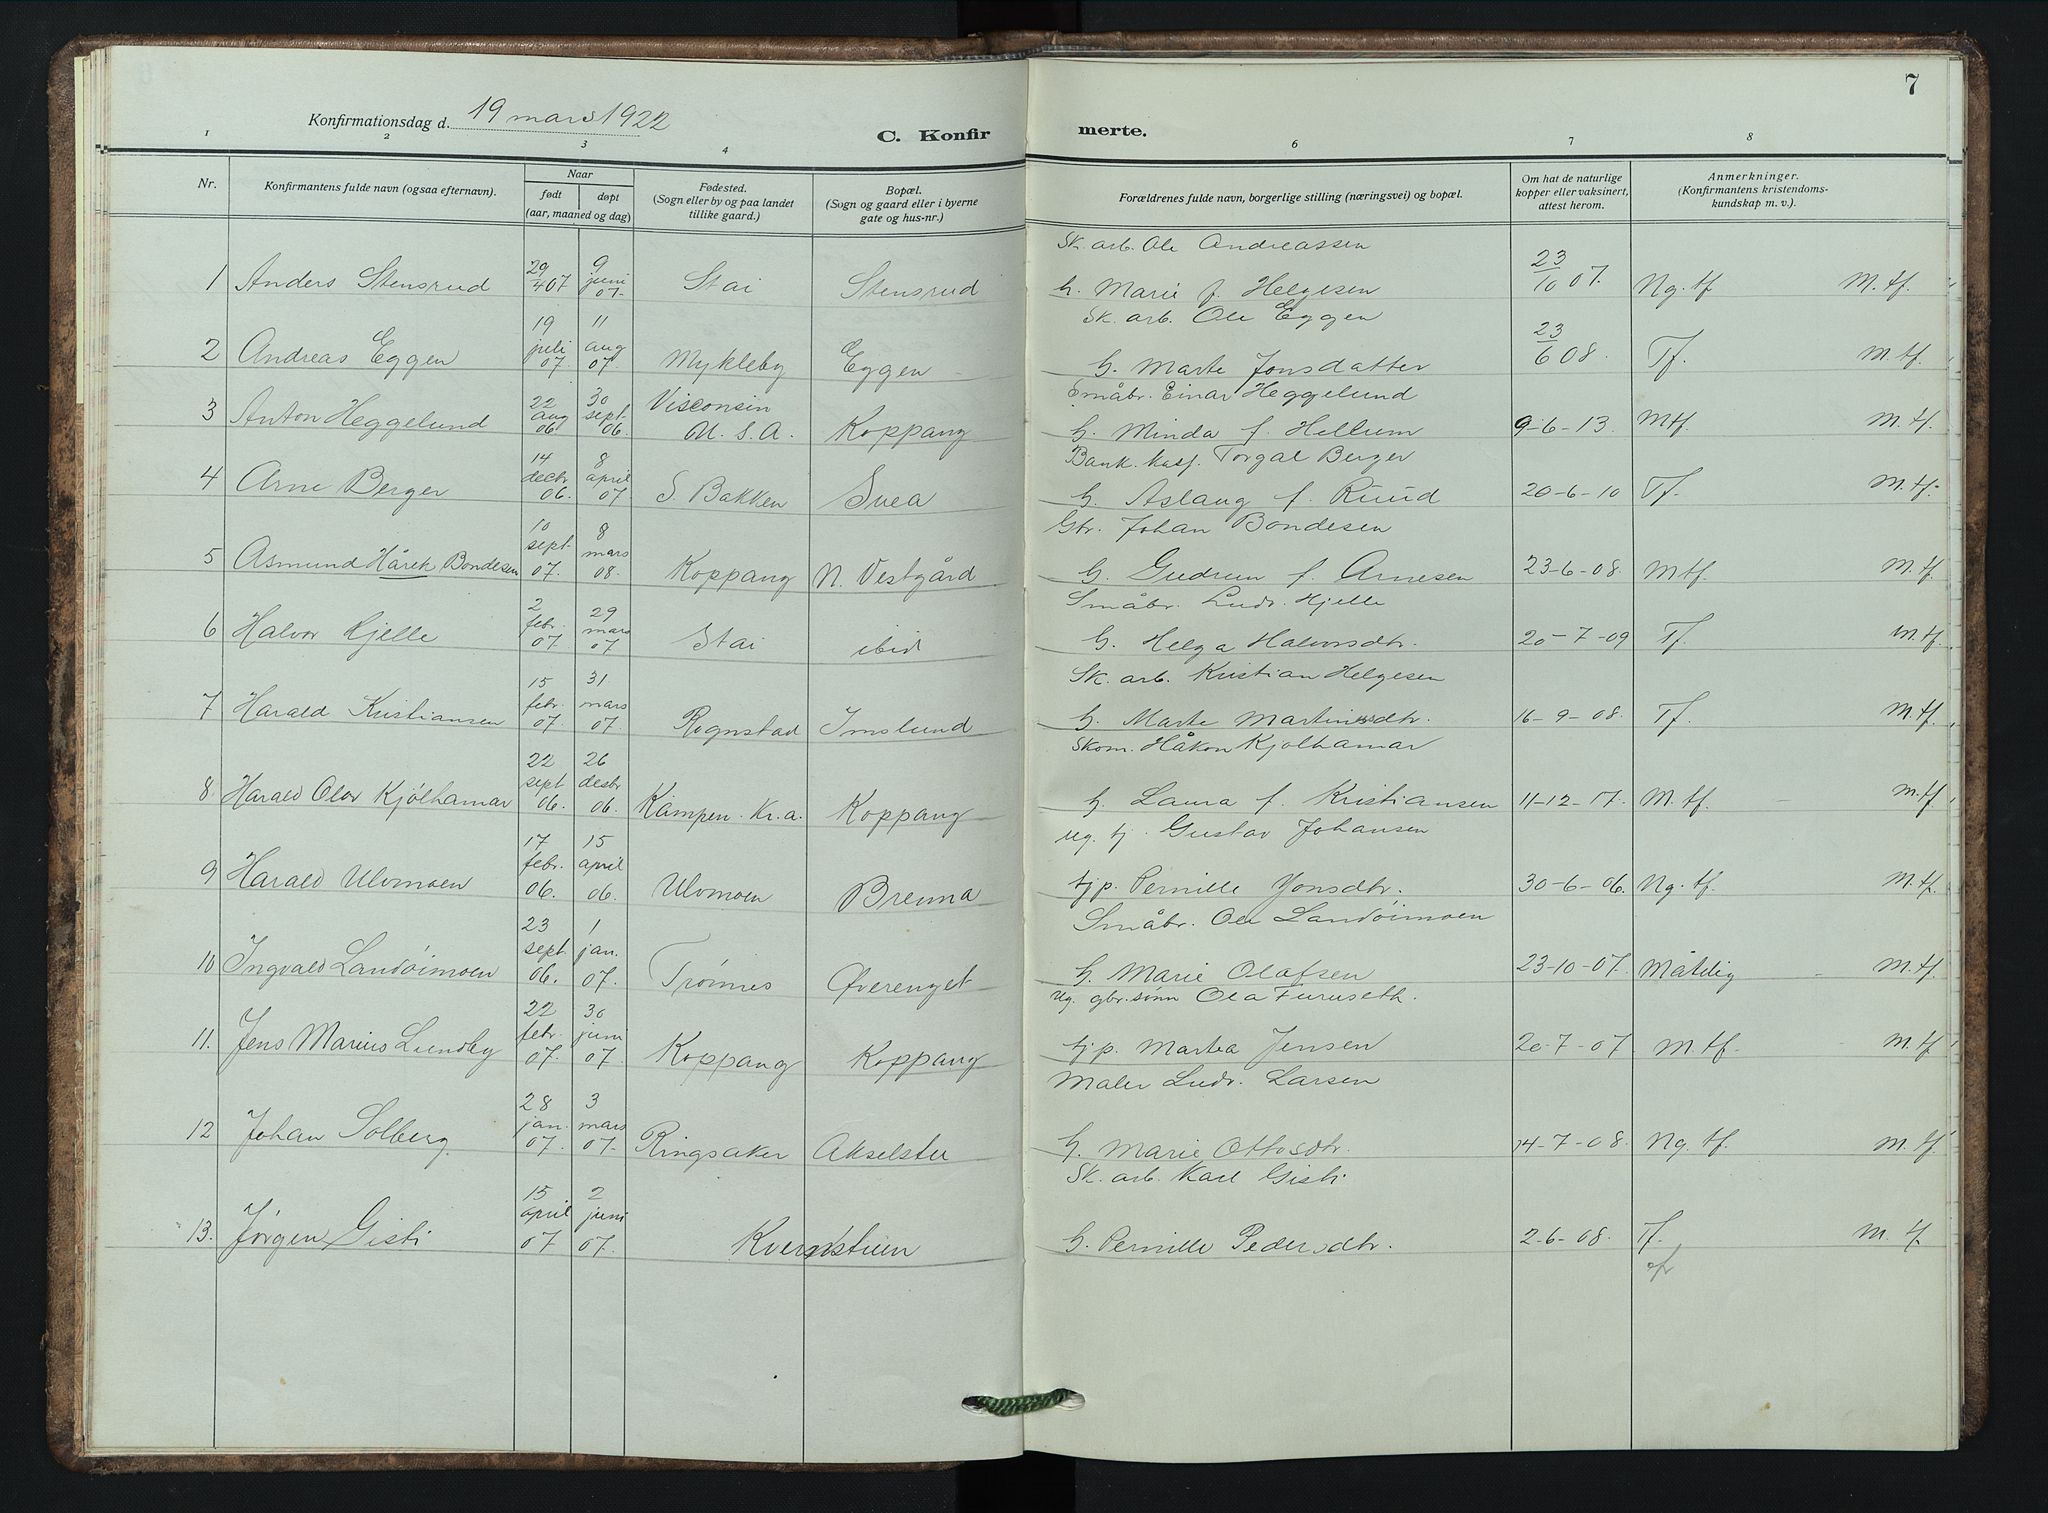 7
Konfirmationsdag d. 19 mars 1922
C. Konfir merte.
1 2 3 4 6 7 8
Nr.
Konfirmantens fulde navn (ogsaa efternavn).
Naar
født døpt
(aar, maaned og dag)
Fødested.
(Sogn eller by og paa landet
tillike gaard.)
Bopæl.
(Sogn og gaard eller i byerne
gate og hus-nr.)
Forældrenes fulde navn, borgerlige stilling (næringsvei) og bopæl.
Om hat de naturlige
kopper eller vaksinert,
attest herom.
Anmerkninger.
(Konfirmantens kristendoms-
kundskap m. v.).
Sk. arb. Ole Andreassen
1 Anders Stensrud 29/4 07 9 juni 07. Stai Stensrud G. Marie f. Helgesen 23/10 07. Ng. tf M. tf.
Sk. arb. Ole Eggen
2 Andreas Eggen 19 juli 07. 11 aug 07. Mykleby Eggen G. Marte Jonsdatter 23/6 08. Tf. M. tf.
Småbr. Einar Heggelund
3 Anton Heggelund 22 aug 06. 30 sept. 06. Visconsin U. S. A. Koppang G. Minda f. Hellum 9-6-13. Mtf. M. tf.
Bank. kass. Torgal Berger
4 Arne Berger 14 decbr 06. 8 april 07. S. Bakken Svea G. Aslaug f. Ruud 20-6-10 Tf. M. tf.
Gbr. Johan Bondesen
5 Asmund Hårek Bondesen 10 sept. 07. 8 mars 08. Koppang N. Vestgård G. Gudrun f. Arnesen 23-6-08. Mtf. M. tf.
Småbr. Ludv. Hjelle
6 Halvor Hjelle 2 febr. 07. 29 mars 07 Stai ibid G. Helga Halvorsdtr. 20-7-09 Tf. M. tf.
Sk. arb. Kristian Helgesen
7 Harald Kristiansen 15 febr. 07. 31 mars 07. Rognstad Imslund G. Marte Martinusdtr. 16-9-08. Tf. M. tf.
Skom. Håkon Kjølhamar
8. Harald Olav Kjølhamar 22 sept 06. 26 desbr 06. Kampen. Kr.a. Koppang G. Laura f. Kristiansen 11-12-17. M. tf. M. tf.
Ug. tj. Gustav Johansen
9 Harald Ulvmoen 17 febr. 06. 15 april 06. Ulvmoen Brenna tj p. Pernille Jonsdtr. 30-6-06. Ng. tf. M. tf.
Småbr. Ole Landøimoen
10 Ingvald Landøimoen 23 sept. 06. 1 jan. 07. Trønnes Øverenget G. Marie Olafsen 23-10-07. Måtelig M. tf.
Ug. gbr. sønn Ola Furuseth.
11. Jens Marius Lundby 22 febr. 07. 30 juni 07. Koppang Koppang tj p. Martea Jensen 20-7-07 M. tf. M. tf
Maler Ludv. Larsen
12 Johan Solberg 28 jan. 07. 3 mars 07. Ringsaker Akselster G. Marie Ottosdtr. 14-7-08. Ng. tf. M. tf.
Sk. arb. Karl Gisti
13. Jørgen Gisti 15 april 07 2 juni 07. Kvernstuen G. Pernille Pedersdtr. 2-6-08. Tf. M. tf